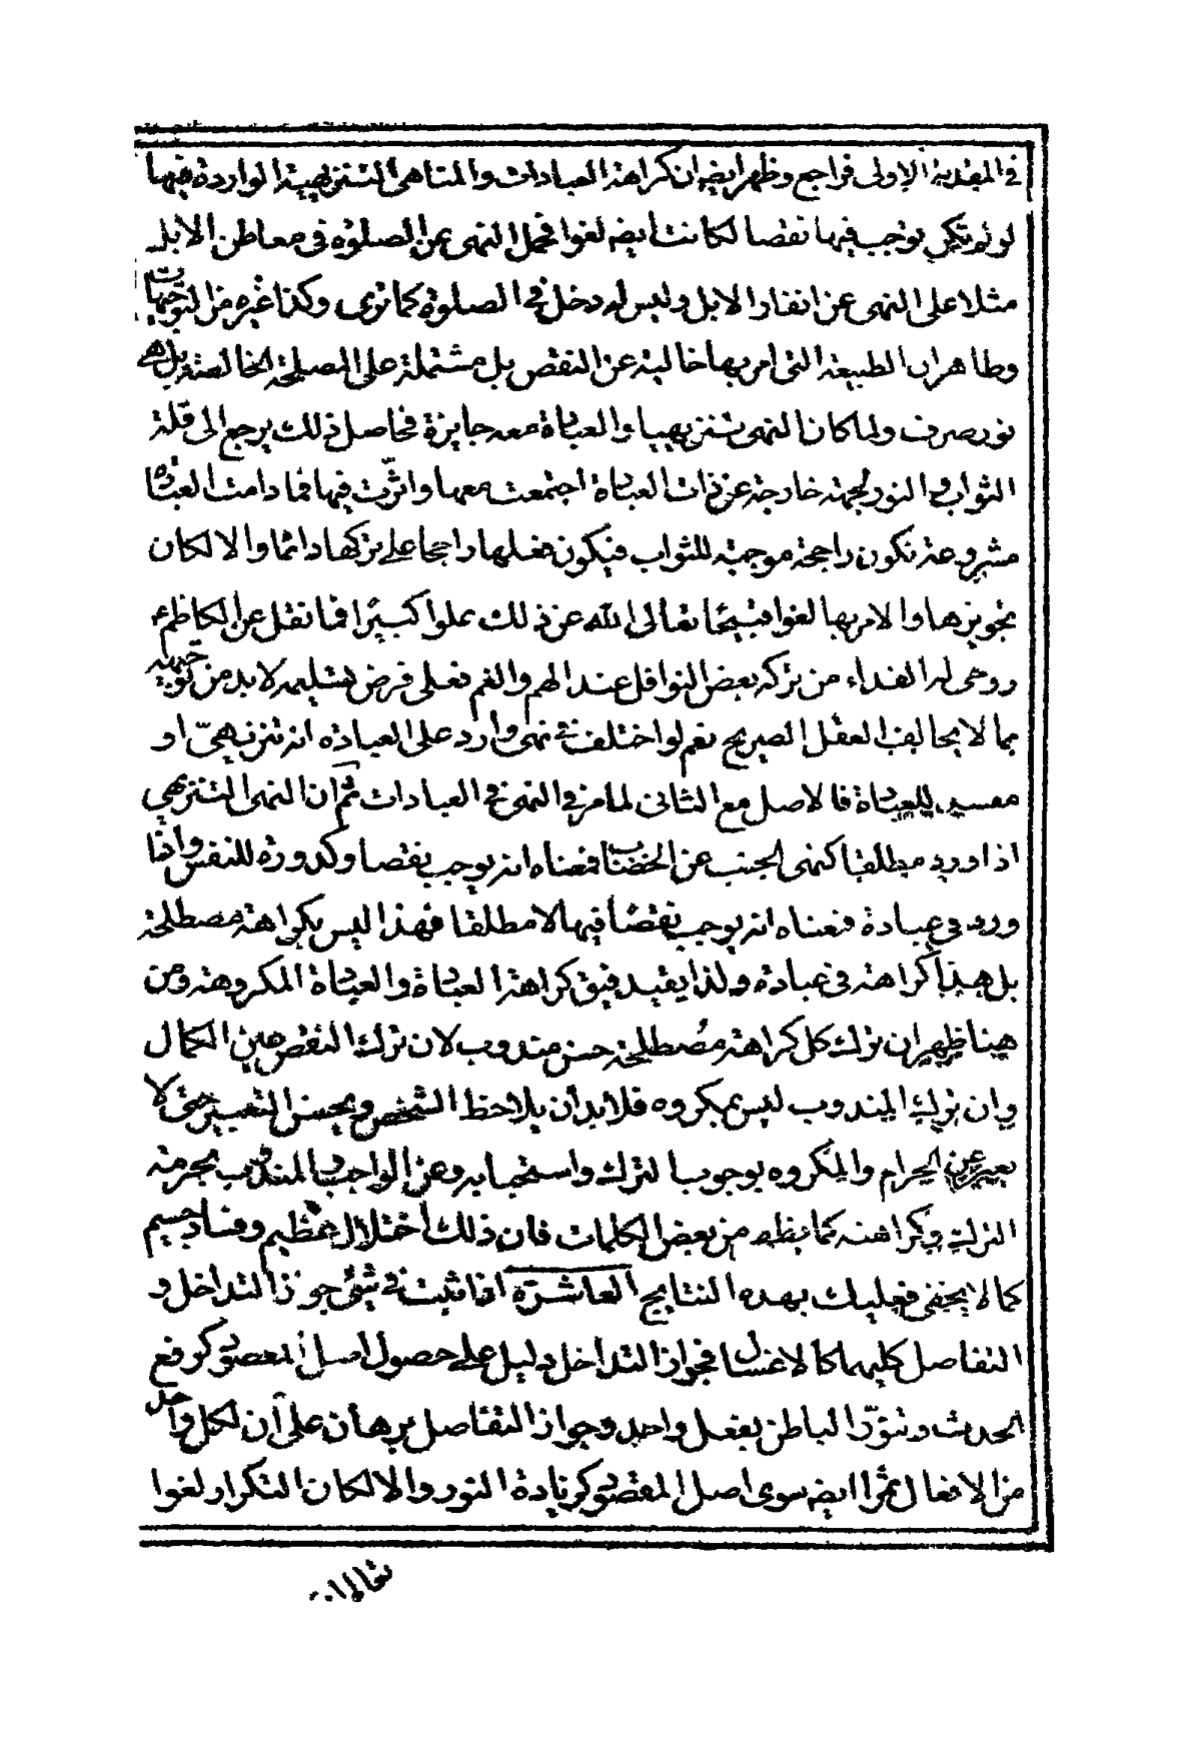 في المقدمة الاولى فراجع وظهر ايضه ان كراهة العبادات والمناهى التنزيهية الواردة فيها
لو لم تكن توجب فيها نقصا لكانت ايضه لغوا فحمل النهى عن الصلوة فى معاطن الابل
مثلا على النهى عن انفار الابل وليس له دخل في الصلوة كما ترى وكذا غيره من التوجيهات
وظاهر ان الطبيعة التى امر بها خالية عن النقص بل مشتملة على المصلحة الخالصة بل هى
نور صرف ولما كان النهى تنزيهيا والعبادة معه جايزة فحاصل ذلك يرجع الى قلة
الثواب والنور لجهة خارجة عن ذات العبادة اجتمعت معها واثّرت فيها فما دامت العبادة
مشروعة تكون راجحة موجبة للثواب فيكون فعلها راجحا على تركها دائما والا لكان
تجويزها والامر بها لغوا قبيحا تعالى الله عن ذلك علوا كبيرا فما نقل عن الكاظم ع
روحى له الفداء من تركه بعض النوافل عند الهم والغم فعلى فرض تسليمه لابد من توجيهه
بما لا يخالف العقل الصريح نعم لو اختلف في نهى وارد على العبادة انه تنزيهىّ او
مفسد للعبادة فالاصل مع الثانى لما مر في النهى في العبادات ثم ان النهى التنزيهي
اذا ورد مطلقا كنهى الجنب عن الخضاب فمعناه انه يوجب نقصا وكدورة للنفس واذا
ورد فى عبادة فمعناه انه يوجب نقصا فيها لا مطلقا فهذا ليس بكراهة مصطلحة
بل هذا كراهة فى عبادة ولذا يقيد فيق كراهة العبادة والعبادة المكروهة ومن
هينا ظهر ان ترك كل كراهة مصطلحة حسن مندوب لان ترك النقص عين الكمال
وان ترك المندوب ليس بمكروه فلابد أن يلاحظ الشخص ويحسن التعبير حتى لا
يعبر عن الحرام والمكروه بوجوب الترك واستحبابه وعن الواجب والمندوب بحرمة
الترك وكراهته كما يظهر من بعض الكلمات فان ذلك اختلال عظيم وفساد جسيم
كما لا يخفى فعليك بهذه النتايج العاشرة اذا ثبت فى شئ جواز التداخل و
التفاصل كليهما كالاغسال فجواز التداخل دليل على حصول اصل المقصود كرفع
الحدث وتنوّر الباطن بفعل واحد وجواز التفاصل برهان على أن لكل واحد
من الافعال ثمرا ايضه سوى اصل المقصود كزيادة النور والا لكان التكرار لغوا